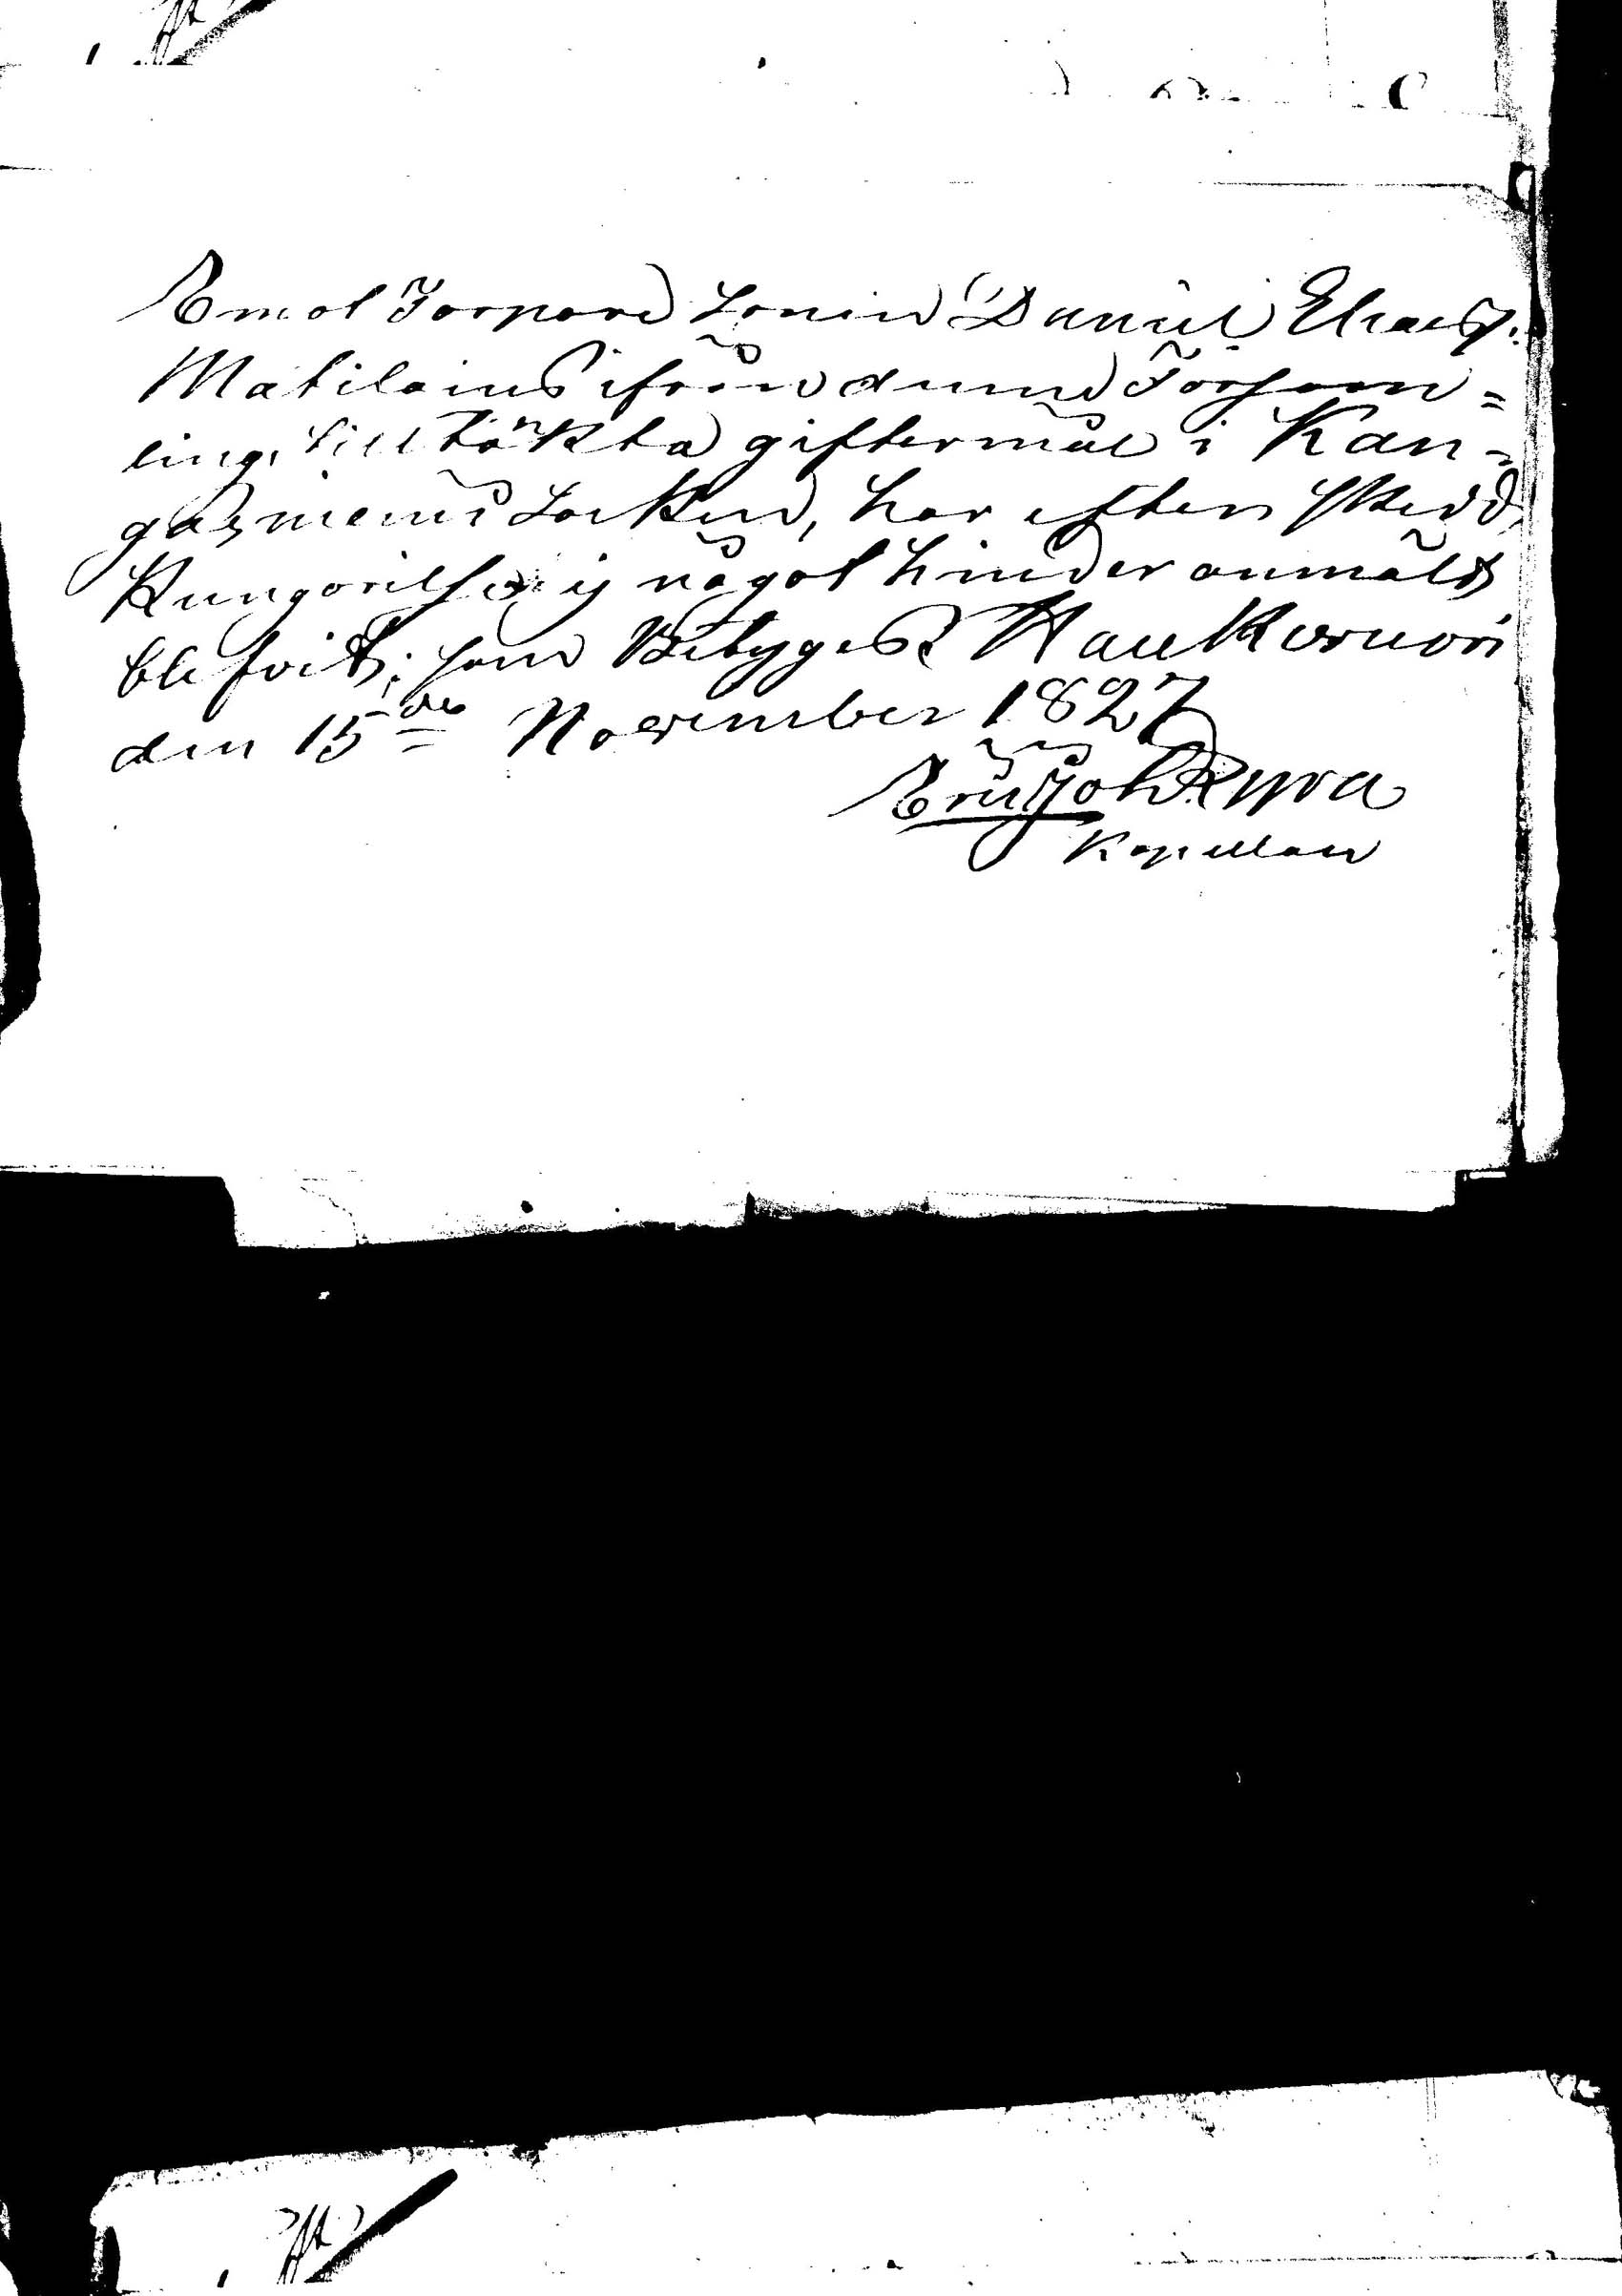 Emot Torpare Sonen Daniel Eliaes.
Matilains ifrån denna Försam=
ling, tilltänkta giftermål i Kan=
gasniemi Socken, har efter skedd
Kungörelse, ej något hinder anmäldt
blefvit; som Betygas Haukivuori
den 15de November 1827
Eric Joh Kyrra
Kapellan